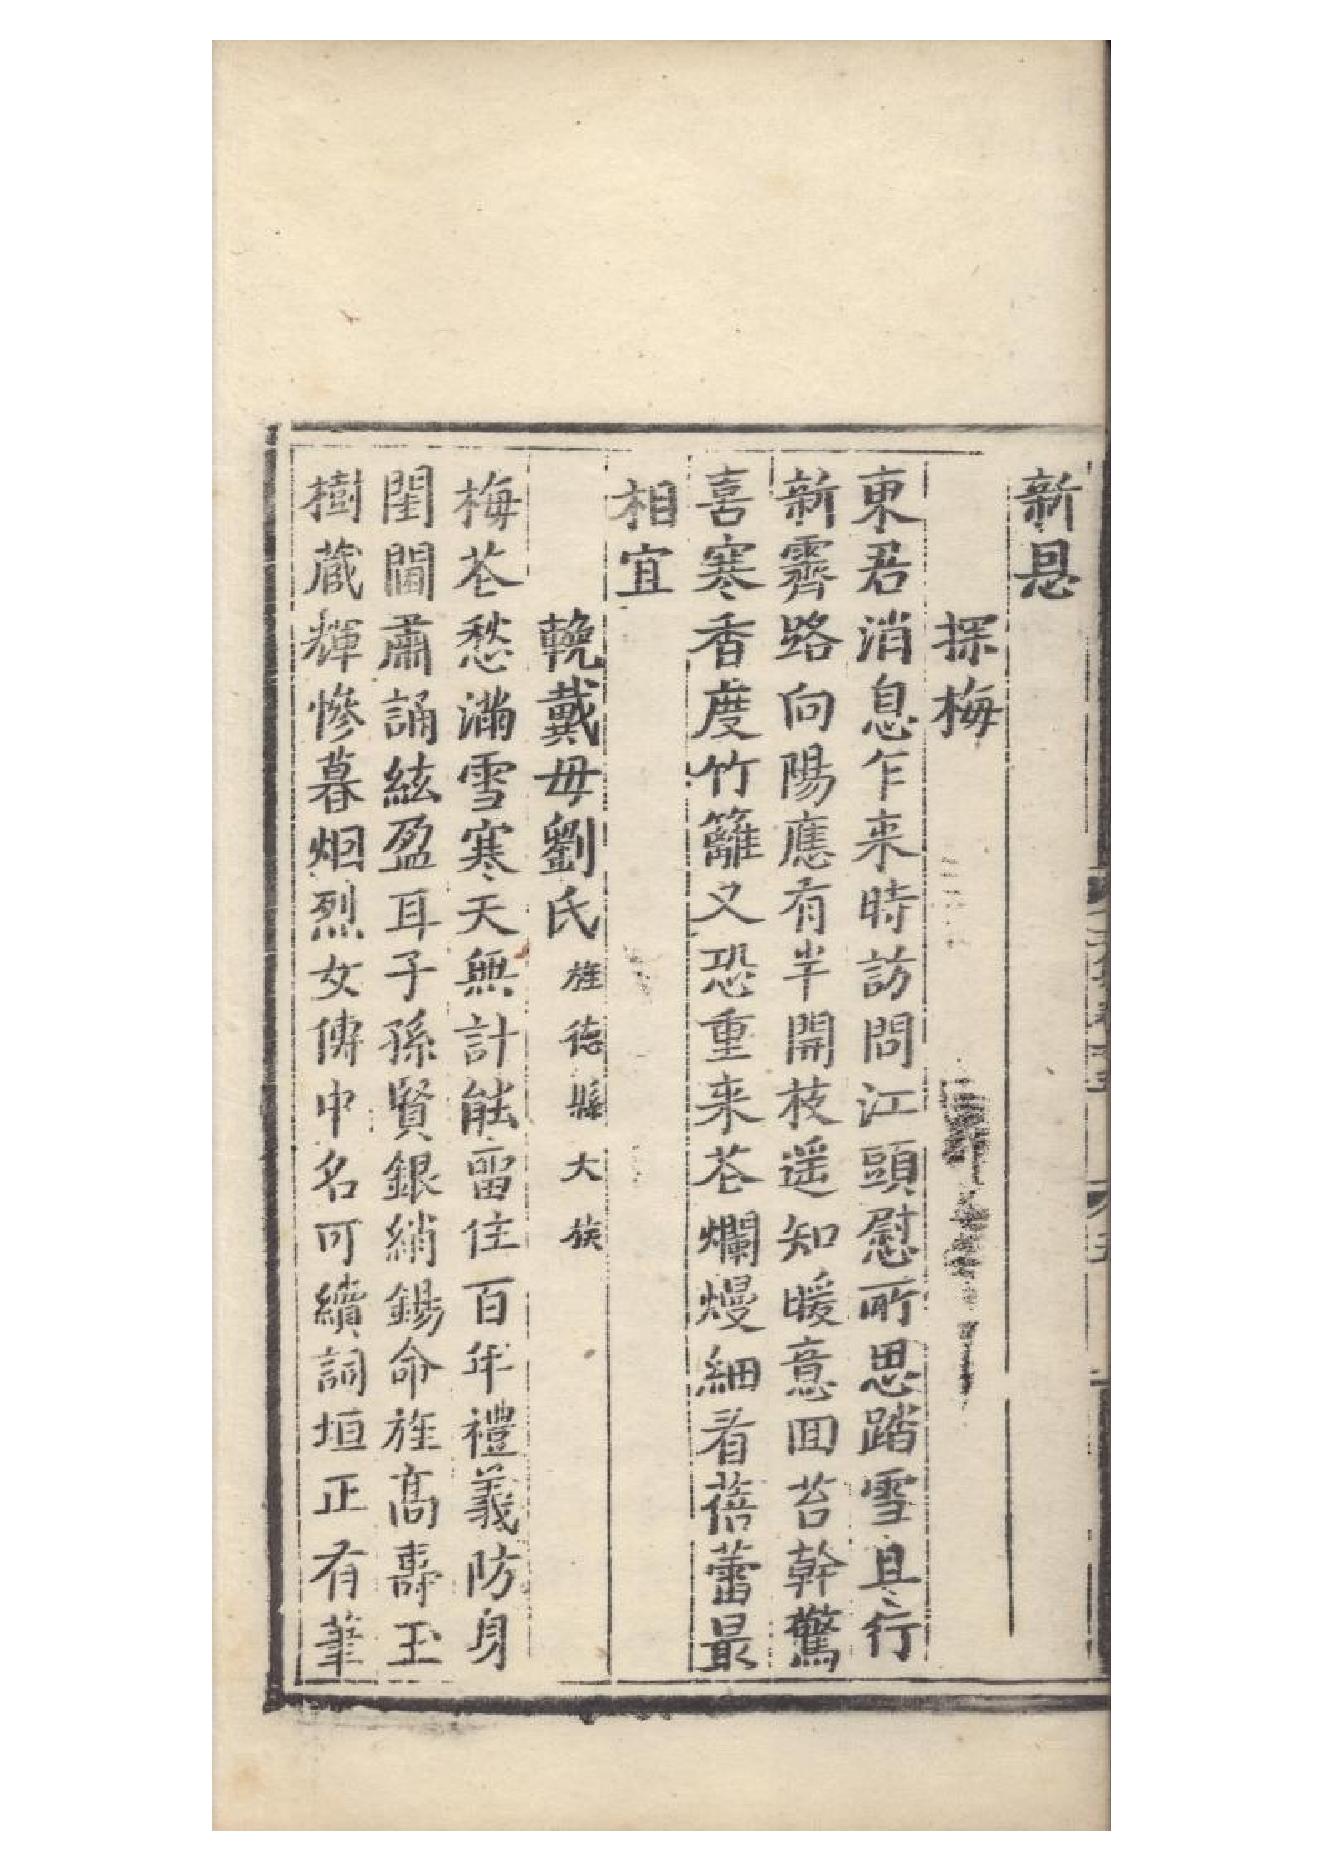 新恩
探梅
東君消息乍来時訪問江頭慰所思踏雪且行
新霽路向陽應有半開枝遥知暖意囬苔幹驚
喜寒香度竹籬又恐重来花爛熳細看蓓蕾最
相宜
輓戴母劉氏旌德縣大族
梅花愁滿雪寒天無計能畱住百年禮義防身
閨閫肅誦絃盈耳子孫賢銀綃錫命旌高壽玉
樹蔵輝慘暮烟烈女傳中名可續詞垣正有筆